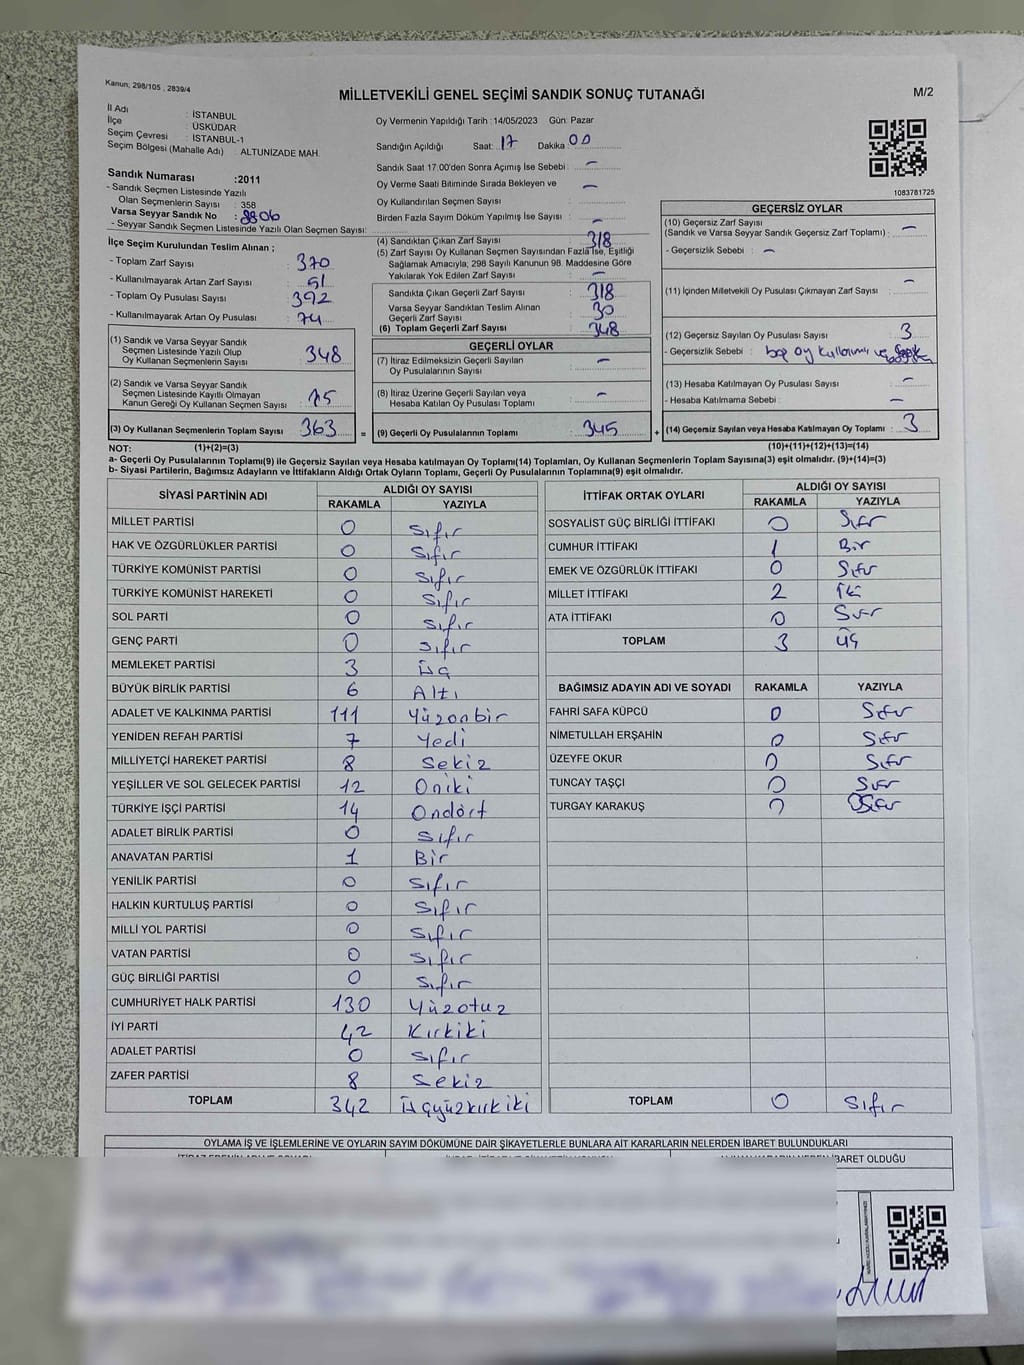 Kanun; 298/105 , 2839/4
MİLLETVEKİLİ GENEL SEÇİMİ SANDIK SONUÇ TUTANAĞI
M/2
İl Adı : İSTANBUL
İlçe : ÜSKÜDAR
Seçim Çevresi : İSTANBUL-1
Seçim Bölgesi (Mahalle Adı) : ALTUNİZADE MAH.
Oy Vermenin Yapıldığı Tarih :14/05/2023 Gün: Pazar
Sandığın Açıldığı Saat: 17 Dakika : 00
Sandık Saat 17:00'den Sonra Açımış İse Sebebi : –
Oy Verme Saati Bitiminde Sırada Bekleyen ve
Oy Kullandırılan Seçmen Sayısı : –
Birden Fazla Sayım Döküm Yapılmış İse Sayısı : –
1083781725
Sandık Numarası :2011
- Sandık Seçmen Listesinde Yazılı
Olan Seçmenlerin Sayısı : 358
Varsa Seyyar Sandık No :
- Seyyar Sandık Seçmen Listesinde Yazılı Olan Seçmen Sayısı:
İlçe Seçim Kurulundan Teslim Alınan ;
- Toplam Zarf Sayısı : 370
- Kullanılmayarak Artan Zarf Sayısı : 51
- Toplam Oy Pusulası Sayısı : 392
- Kullanılmayarak Artan Oy Pusulası : 74
(1) Sandık ve Varsa Seyyar Sandık
Seçmen Listesinde Yazılı Olup
Oy Kullanan Seçmenlerin Sayısı : 348
(2) Sandık ve Varsa Seyyar Sandık
Seçmen Listesinde Kayıtlı Olmayan
Kanun Gereği Oy Kullanan Seçmen Sayısı : 15
(3) Oy Kullanan Seçmenlerin Toplam Sayısı : 363
(4) Sandıktan Çıkan Zarf Sayısı : 318
(5) Zarf Sayısı Oy Kullanan Seçmen Sayısından Fazla İse, Eşitliği
Sağlamak Amacıyla, 298 Sayılı Kanunun 98. Maddesine Göre
Yakılarak Yok Edilen Zarf Sayısı : –
Sandıkta Çıkan Geçerli Zarf Sayısı : 318
Varsa Seyyar Sandıktan Teslim Alınan
Geçerli Zarf Sayısı : 30
(6) Toplam Geçerli Zarf Sayısı : 348
GEÇERLİ OYLAR
(7) İtiraz Edilmeksizin Geçerli Sayılan
Oy Pusulalarının Sayısı : –
(8) İtiraz Üzerine Geçerli Sayılan veya
Hesaba Katılan Oy Pusulası Toplamı : –
= (9) Geçerli Oy Pusulalarının Toplamı : 345
GEÇERSİZ OYLAR
(10) Geçersiz Zarf Sayısı
(Sandık ve Varsa Seyyar Sandık Geçersiz Zarf Toplamı) : –
- Geçersizlik Sebebi : –
(11) İçinden Milletvekili Oy Pusulası Çıkmayan Zarf Sayısı : –
(12) Geçersiz Sayılan Oy Pusulası Sayısı : 3
- Geçersizlik Sebebi : boş oy kullanımı ve
(13) Hesaba Katılmayan Oy Pusulası Sayısı : –
- Hesaba Katılmama Sebebi : –
+ (14) Geçersiz Sayılan veya Hesaba Katılmayan Oy Toplamı : 3
NOT: (1)+(2)=(3) (10)+(11)+(12)+(13)=(14)
a- Geçerli Oy Pusulalarının Toplamı(9) ile Geçersiz Sayılan veya Hesaba katılmayan Oy Toplamı(14) Toplamları, Oy Kullanan Seçmenlerin Toplam Sayısına(3) eşit olmalıdır. (9)+(14)=(3)
b- Siyasi Partilerin, Bağımsız Adayların ve İttifakların Aldığı Ortak Oyların Toplamı, Geçerli Oy Pusulalarının Toplamına(9) eşit olmalıdır.
SİYASİ PARTİNİN ADI ALDIĞI OY SAYISI
RAKAMLA YAZIYLA
MİLLET PARTİSİ 0 Sıfır
HAK VE ÖZGÜRLÜKLER PARTİSİ 0 Sıfır
TÜRKİYE KOMÜNİST PARTİSİ 0 Sıfır
TÜRKİYE KOMÜNİST HAREKETİ 0 Sıfır
SOL PARTİ 0 Sıfır
GENÇ PARTİ 0 Sıfır
MEMLEKET PARTİSİ 3 Üç
BÜYÜK BİRLİK PARTİSİ 6 Altı
ADALET VE KALKINMA PARTİSİ 111 Yüzonbir
YENİDEN REFAH PARTİSİ 7 Yedi
MİLLİYETÇİ HAREKET PARTİSİ 8 Sekiz
YEŞİLLER VE SOL GELECEK PARTİSİ 12 Oniki
TÜRKİYE İŞÇİ PARTİSİ 14 Ondört
ADALET BİRLİK PARTİSİ 0 Sıfır
ANAVATAN PARTİSİ 1 Bir
YENİLİK PARTİSİ 0 Sıfır
HALKIN KURTULUŞ PARTİSİ 0 Sıfır
MİLLİ YOL PARTİSİ 0 Sıfır
VATAN PARTİSİ 0 Sıfır
GÜÇ BİRLİĞİ PARTİSİ 0 Sıfır
CUMHURİYET HALK PARTİSİ 130 Yüzotuz
İYİ PARTİ 42 Kırkiki
ADALET PARTİSİ 0 Sıfır
ZAFER PARTİSİ 8 Sekiz
TOPLAM 342 Üçyüzkırkiki
İTTİFAK ORTAK OYLARI ALDIĞI OY SAYISI
RAKAMLA YAZIYLA
SOSYALİST GÜÇ BİRLİĞİ İTTİFAKI 0 Sıfır
CUMHUR İTTİFAKI 1 Bir
EMEK VE ÖZGÜRLÜK İTTİFAKI 0 Sıfır
MİLLET İTTİFAKI 2 İki
ATA İTTİFAKI 0 Sıfır
TOPLAM 3 Üç
BAĞIMSIZ ADAYIN ADI VE SOYADI RAKAMLA YAZIYLA
FAHRİ SAFA KÜPCÜ 0 Sıfır
NİMETULLAH ERŞAHİN 0 Sıfır
ÜZEYFE OKUR 0 Sıfır
TUNCAY TAŞÇI 0 Sıfır
TURGAY KARAKUŞ 0 Sıfır
TOPLAM 0 Sıfır
OYLAMA İŞ VE İŞLEMLERİNE VE OYLARIN SAYIM DÖKÜMÜNE DAİR ŞİKAYETLERLE BUNLARA AİT KARARLARIN NELERDEN İBARET BULUNDUKLARI
İBARET OLDUĞU